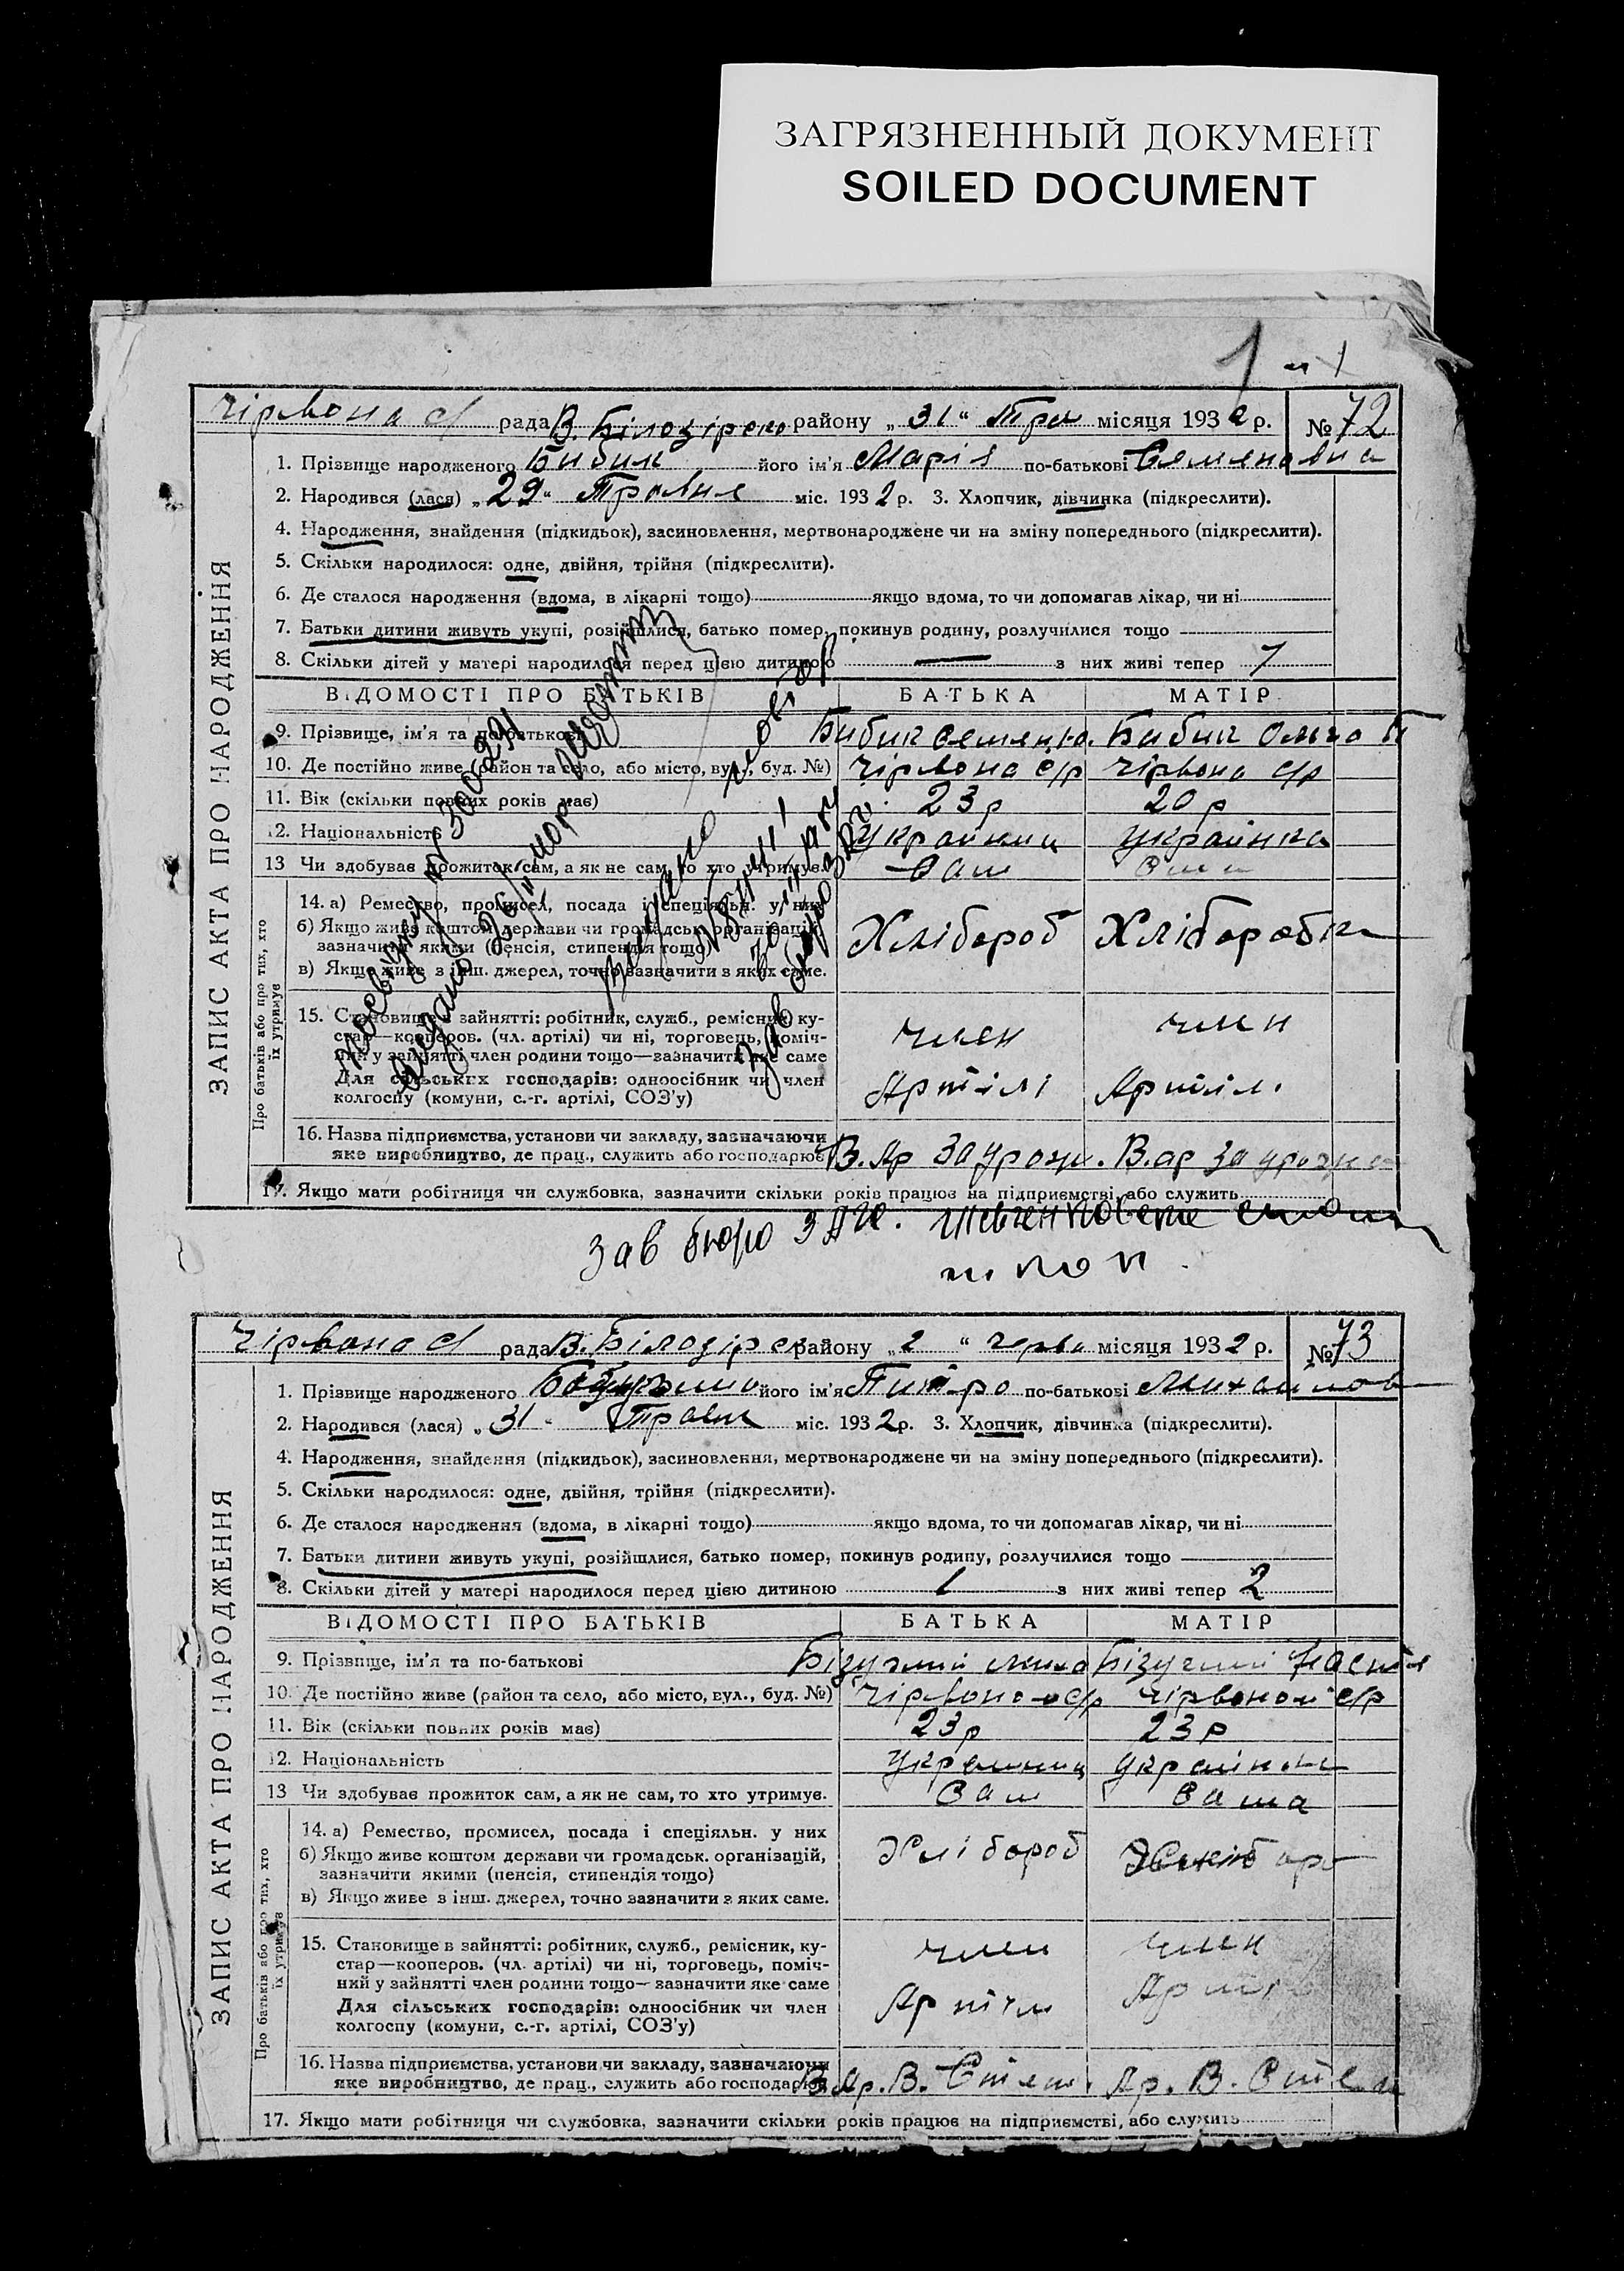 ЗАГРЯЗНЕННЫЙ ДОКУМЕНТ
SOILED DOCUMENT
1
Чірвона с/ рада В. Білозірсko району „31“ Тра місяця 1932 р. № 72
ЗАПИС АКТА ПРО НАРОДЖЕННЯ
1. Прізвище народженого Бибик його ім'я Марія по-батькові Семеновна
2. Народився (лася) „29“ Травня міс. 1932 р. 3. Хлопчик, дівчинка (підкреслити).
4. Народження, знайдення (підкидьок), засиновлення, мертвонароджене чи на зміну попереднього (підкреслити).
5. Скільки народилося: одне, двійня, трійня (підкреслити).
6. Де сталося народження (вдома, в лікарні тощо) якщо вдома, то чи допомагав лікар, чи ні
7. Батьки дитини живуть укупі, розійшлися, батько помер, покинув родину, розлучилися тощо
8. Скільки дітей у матері народилося перед цією дитиною — з них живі тепер 1
ВІДОМОСТІ ПРО БАТЬКІВ БАТЬКА МАТІР
9. Прізвище, ім'я та по-батькові Бибик Бибик Ольга
10. Де постійно живе (район та село, або місто, вул., буд. №) Чірвона с/р Чірвона с/р
11. Вік (скільки повних років має) 23 р 20 р
12. Національність Украйниц Украйнка
13 Чи здобуває прожиток сам, а як не сам, то хто утримує. Сам
Про батьків або про тих, хто їх утримує
14. а) Ремество, промисел, посада і спеціяльн. у них Хлібороб Хлібаробка
б) Якщо живе коштом держави чи громадськ. організацій,
зазначити якими (пенсія, стипендія тощо)
в) Якщо живе з інш. джерел, точно зазначити з яких саме.
15. Становище в зайнятті: робітник, служб., ремісник, ку-
стар—кооперов. (чл. артілі) чи ні, торговець, поміч- член член
ний у зайнятті член родини тощо—зазначити яке саме
Для сільських господарів: одноосібник чи член Артілі Артіл.
колгоспу (комуни, с.-г. артілі, СОЗ'у)
16. Назва підприємства, установи чи закладу, зазначаючи
яке виробництво, де прац., служить або господарює В. Ар За урож. В. ар За урож
17. Якщо мати робітниця чи службовка, зазначити скільки років працює на підприємстві, або служить
Зав бюро ЗАГС.
Чірвона с/ рада В. Білозірск району „2“ черв місяця 1932 р. № 73
ЗАПИС АКТА ПРО НАРОДЖЕННЯ
1. Прізвище народженого його ім'я Питро по-батькові Михайлов
2. Народився (лася) „31“ Травн міс. 1932 р. 3. Хлопчик, дівчинка (підкреслити).
4. Народження, знайдення (підкидьок), засиновлення, мертвонароджене чи на зміну попереднього (підкреслити).
5. Скільки народилося: одне, двійня, трійня (підкреслити).
6. Де сталося народження (вдома, в лікарні тощо) якщо вдома, то чи допомагав лікар, чи ні
7. Батьки дитини живуть укупі, розійшлися, батько помер, покинув родину, розлучилися тощо
8. Скільки дітей у матері народилося перед цією дитиною 1 з них живі тепер 2
ВІДОМОСТІ ПРО БАТЬКІВ БАТЬКА МАТІР
9. Прізвище, ім'я та по-батькові Настя
10. Де постійно живе (район та село, або місто, вул., буд. №) с/р с/р
11. Вік (скільки повних років має) 23 р 23 р
12. Національність
13 Чи здобуває прожиток сам, а як не сам, то хто утримує. Сам Сама
Про батьків або про тих, хто їх утримує
14. а) Ремество, промисел, посада і спеціяльн. у них Хлібороб
б) Якщо живе коштом держави чи громадськ. організацій,
зазначити якими (пенсія, стипендія тощо)
в) Якщо живе з інш. джерел, точно зазначити з яких саме.
15. Становище в зайнятті: робітник, служб., ремісник, ку- член член
стар—кооперов. (чл. артілі) чи ні, торговець, поміч-
ний у зайнятті член родини тощо—зазначити яке саме
Для сільських господарів: одноосібник чи член
колгоспу (комуни, с.-г. артілі, СОЗ'у)
16. Назва підприємства, установи чи закладу, зазначаючи
яке виробництво, де прац., служить або господарює В. Ар. В. Степ Ар. В. Степ
17. Якщо мати робітниця чи службовка, зазначити скільки років працює на підприємстві, або служить